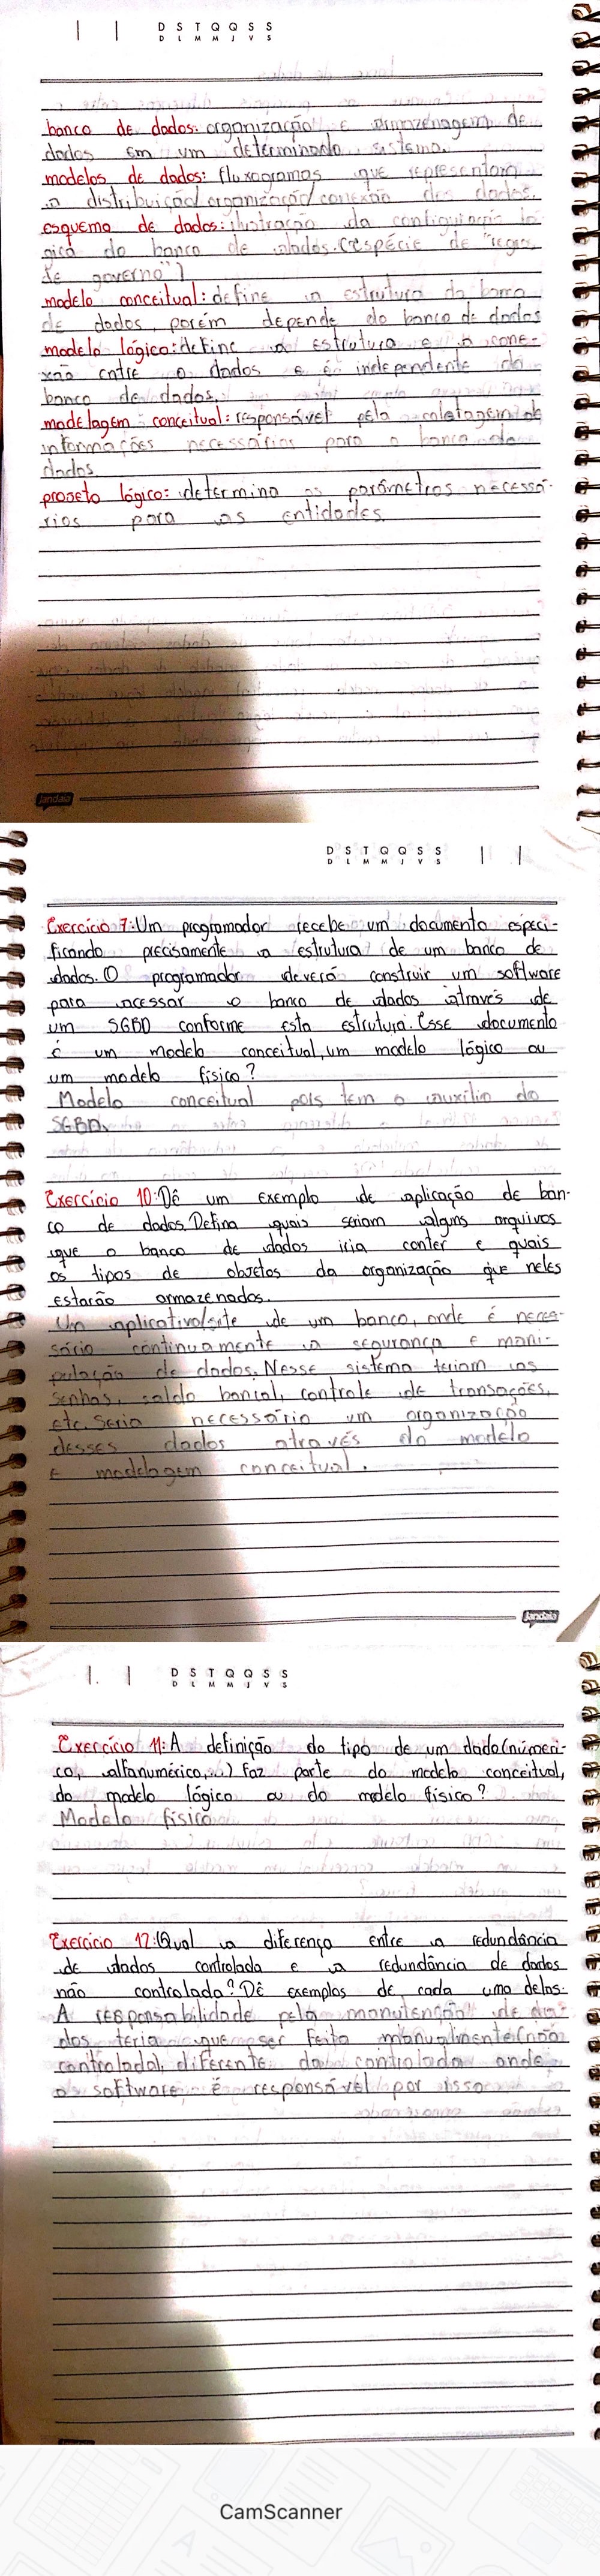 D S T Q Q S S
D L M M J V S
banco de dados: organização e armazenagem de
dados em um determinado sistema.
modelos de dados: fluxogramas que representam
a distribuição/organização/conexão dos dados.
esquema de dados: ilustração da configuração ló-
gica do banco de dados. (espécie de "regra
de governo")
modelo conceitual: define a estrutura do banco
de dados, porém depende do banco de dados
modelo lógico: define a estrutura e a cone-
xão entre o dados e é independente do
banco de dados.
modelagem conceitual: responsável pela coletagem de
informações necessárias para o banco de
dados
projeto lógico: determina os parâmetros necessá-
rios para as entidades
Jandaia
D S T Q Q S S
D L M M J V S
Exercício 7: Um programador recebe um documento especi-
ficando precisamente a estrutura de um banco de
dados. O programador deverá construir um software
para acessar o banco de dados através de
um SGBD conforme esta estrutura. Esse documento
é um modelo conceitual, um modelo lógico ou
um modelo físico?
Modelo conceitual pois tem o auxílio do
SGBD.
Exercício 10: Dê um exemplo de aplicação de ban-
co de dados. Defina quais seriam alguns arquivos
que o banco de dados iria conter e quais
os tipos de objetos da organização que neles
estarão armazenados.
Um aplicativo/site de um banco, onde é neces-
sário continuamente a segurança e mani-
pulação de dados. Nesse sistema teriam as
senhas, saldo bancal, controle de transações,
etc. Seria necessário um organização
desses dados através do modelo
e modelagem conceitual.
Jandaia
D S T Q Q S S
D L M M J V S
Exercício 11: A definição do tipo de um dado (númeri-
co, alfanumérico,...) faz parte do modelo conceitual,
do modelo lógico ou do modelo físico?
Modelo físico
Exercício 12: Qual a diferença entre a redundância
de dados controlada e a redundância de dados
não controlada? Dê exemplos de cada uma delas.
A responsabilidade pela manutenção de da-
dos teria que ser feita manualmente (não
controlada), diferente da controlada onde
o software é responsável por isso
CamScanner